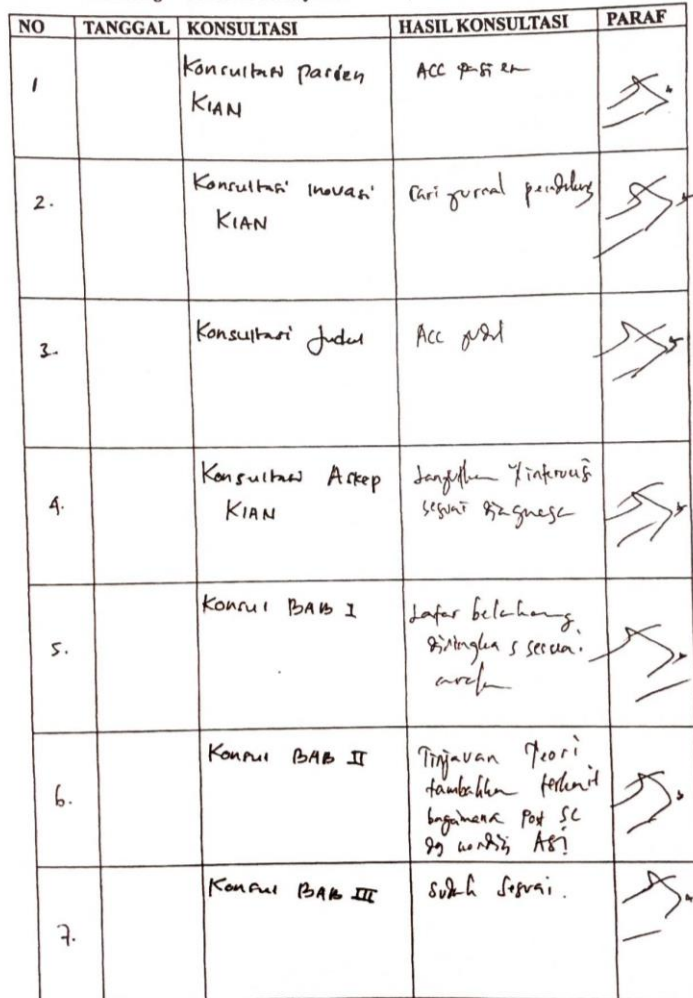 NO TANGGAL KONSULTASI HASIL KONSULTASI PARAF
1 Konsultasi Pasien ACC pasien
KIAN
2. Konsultasi inovasi Cari jurnal pendukung
KIAN
3. Konsultasi Judul Acc judul
4. Konsultasi Askep Lanjutkan intervensi
KIAN sesuai diagnosa
5. Konsul BAB I Latar belakang
disingkat sesuai
arahan
6. Konsul BAB II Tinjauan Teori
tambahkan terkait
bagaimana Post SC
dg kondisi ASI
7. Konsul BAB III sudah sesuai.